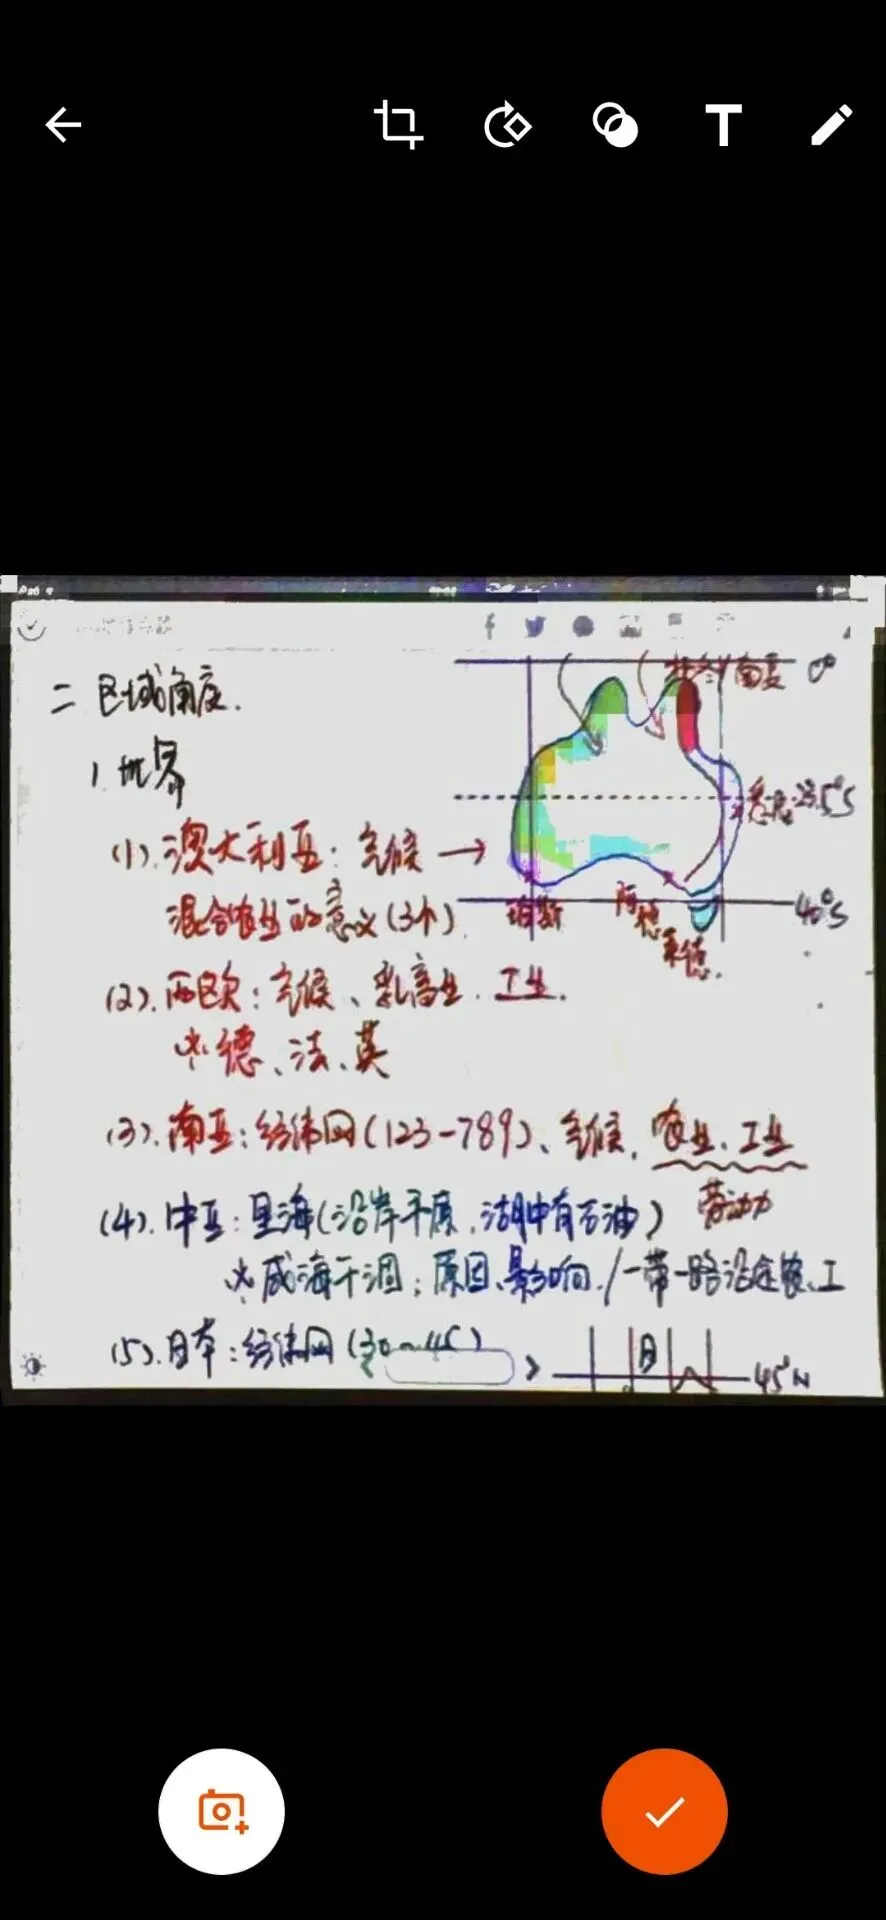 T
二 区域角度.
0°
1. 世界
悉尼 23.5°S
(1). 澳大利亚: 气候 →
混合农业的意义(3个)
珀斯
阿德莱德.
40°S
(2). 西欧: 气候、乳畜业. 工业.
德、法、英
(3). 南亚: 经纬网(123-789)、气候, 农业、工业
劳动力
(4). 中亚: 里海(沿岸平原, 湖中有石油)
咸海干涸: 原因、影响. / 一带一路沿途农、工
(5). 日本: 经纬网(30~45)
日
45°N